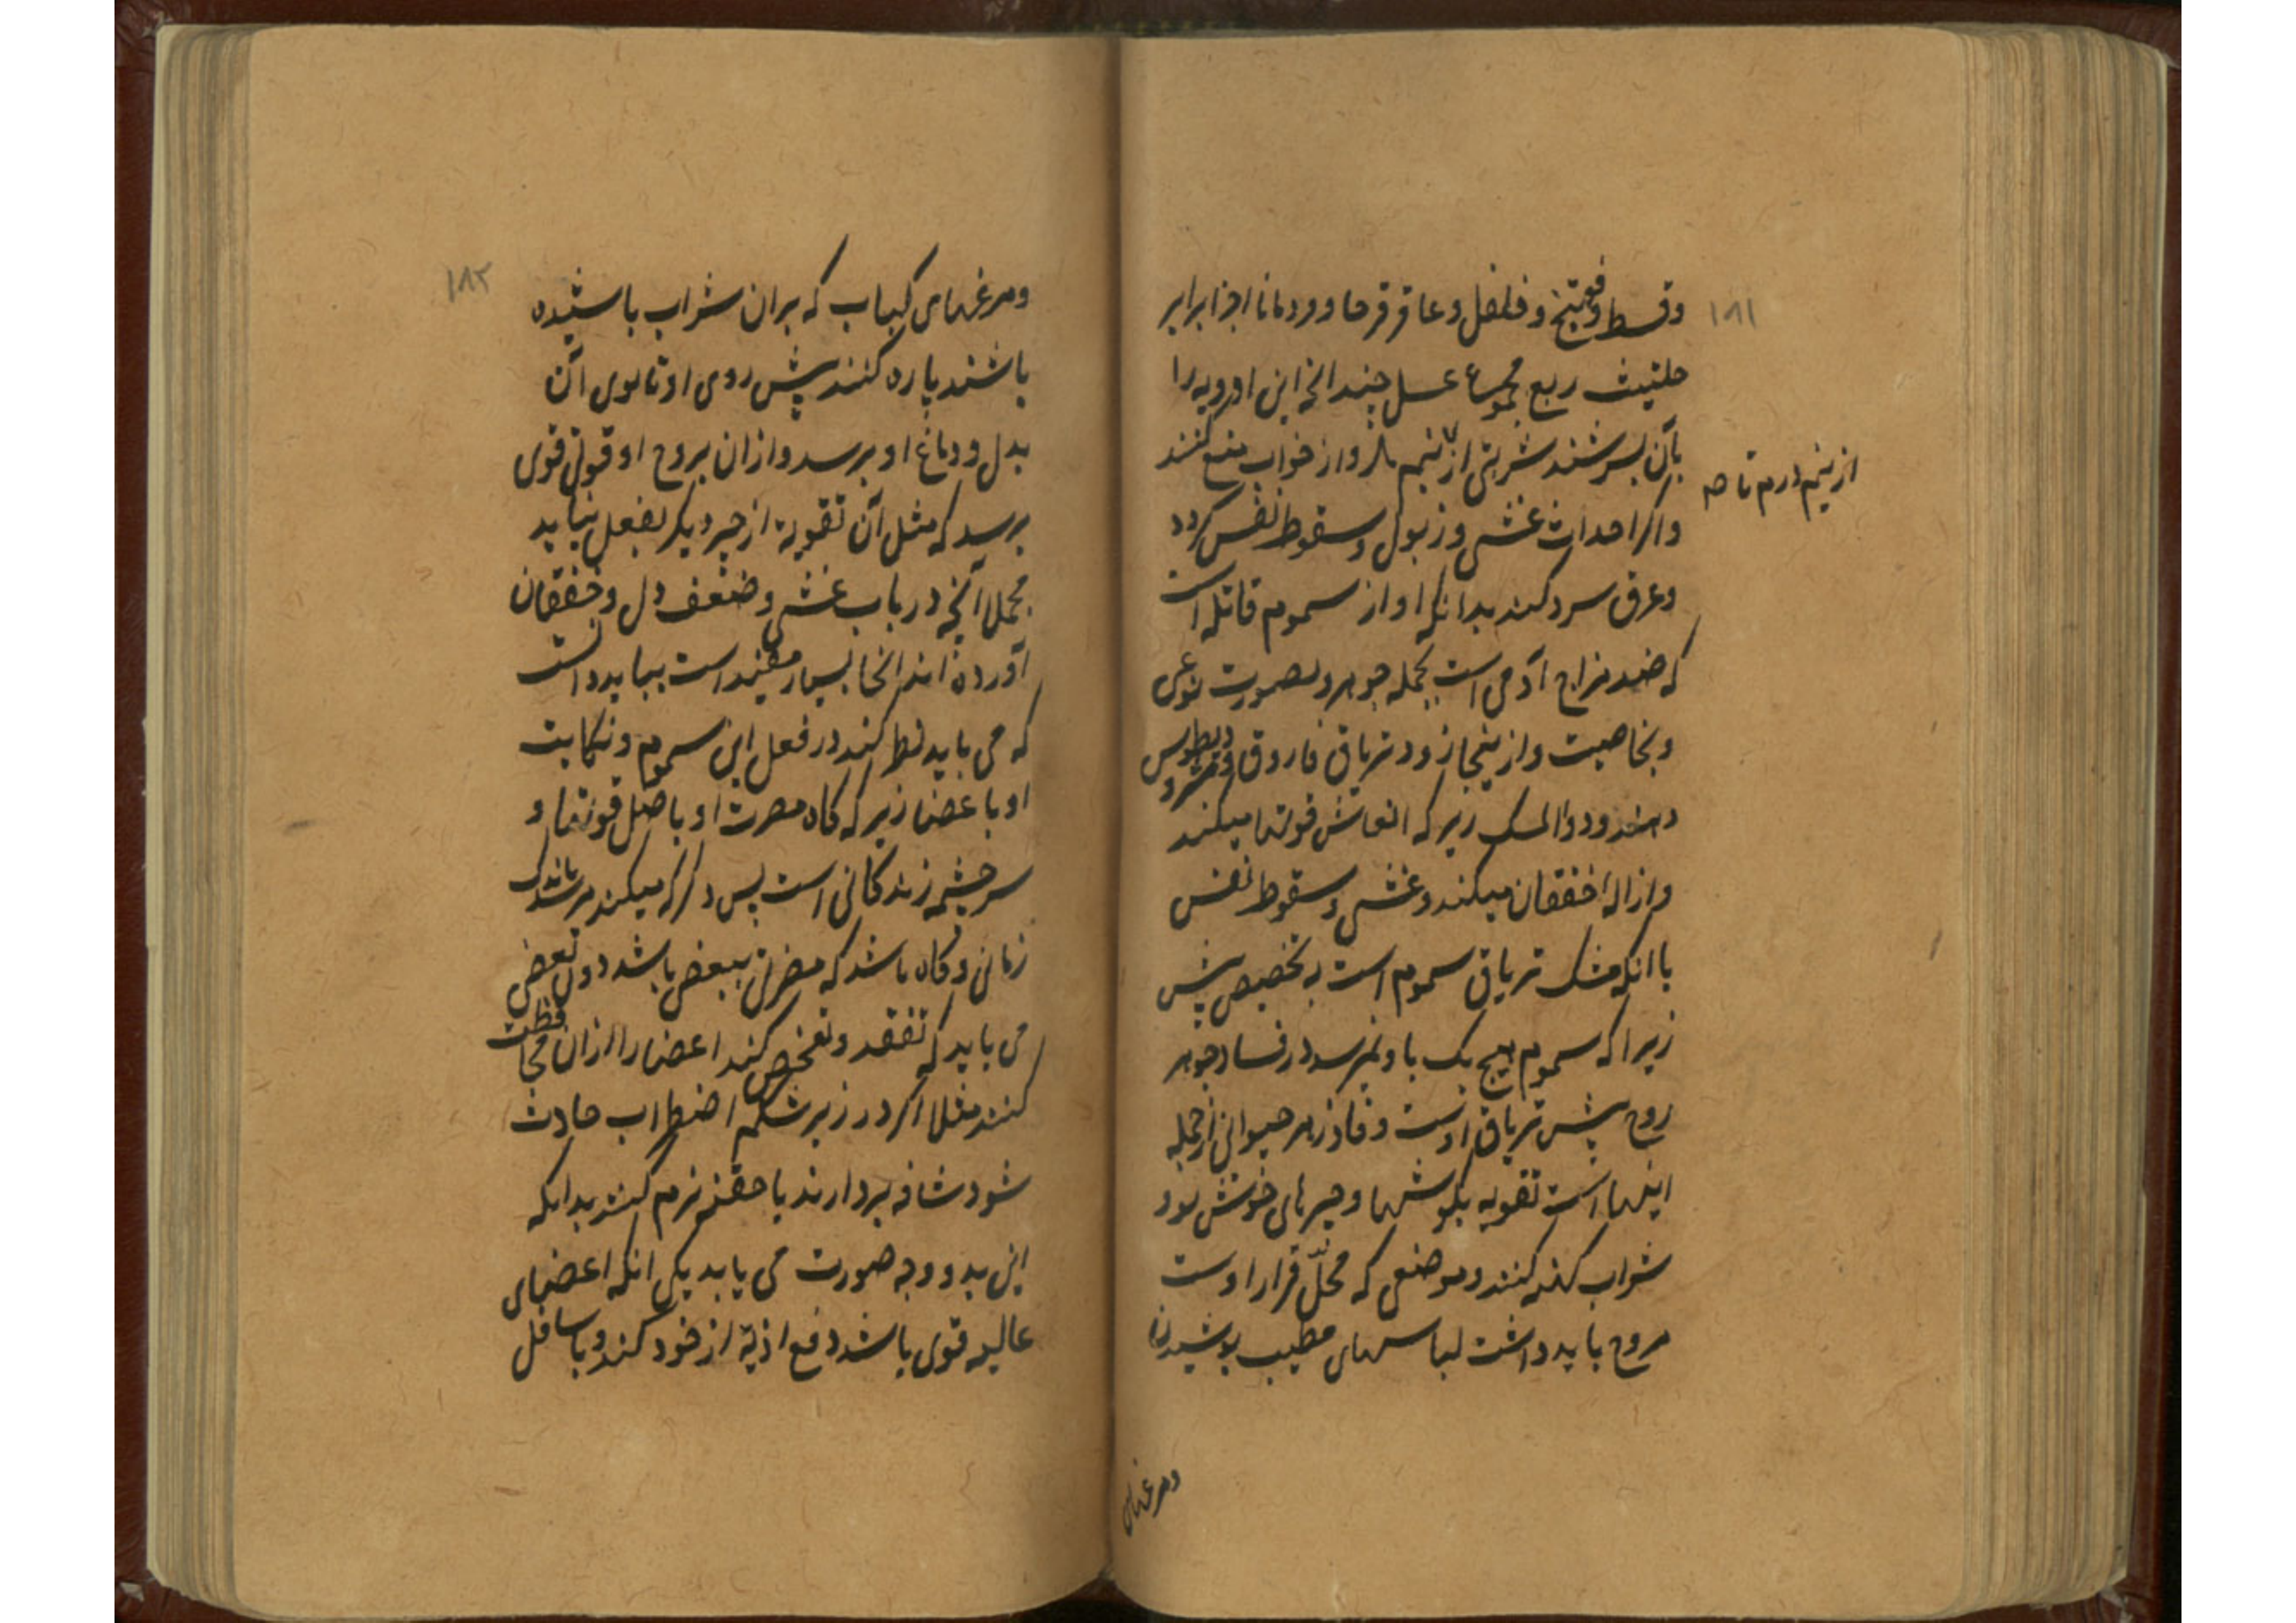 ۱۸۱
وقسط وفوتنج و فلفل و عاقرقرحا و زرمانا اجزا برابر
حلتیت ربع مجموع عسل چندانچه این ادویه را
بآن بسرشند شربتی از نیم تا از خواب منع کنند
از نیم درم تا
واکر احداث غشی و زبول و سقوط نفس کردد
وعرق سرد کند بدانکه او از سموم قاتله است
که ضد مزاج آدمی است بجمله جوهر و بصورت نوعی
و بخاصیت و از ینجا زود تریاق فاروق و مثرودیطوس
دهند و دوالمسک زیر که انعاش قوتها میکند
وازاله خفقان میکند و غشی و سقوط نفس
با انکه مشک تریاق سموم است به تخصیص پیش
زیرا که سموم هیچ یک باو نمیرسد در فساد جوهر
روح پیش تریاق اوست و فادزهر حیوانی از جمله
اینها است تقویه بکوشها و چیزهای خوش بود
شراب کهنه کنند و موضعی که محلّ قرار اوست
مروح باید داشت لباسهای مطیب پوشیدن
ومرغهای
۱۸۲
ومرغهای کباب که بران شراب باشیده
باشند پاره کنند پیش روی او تا بوی آن
بدل و دماغ او برسد و ازان بروح او قوتی قوی
برسد که مثل آن تقویة از چیز دیکر بفعل نیاید
مجملا آنچه در باب غشی و ضعف دل و خفقان
آورده اند انجا بسیار مفیند است بباید دانست
که می باید نظر کند در فعل این سموم و نکایت
او با عضا زیر که کاه مضرت او باصل قوتها و
سر چشمه زندکانی است پس درکه میکند در اندک
زمانی و کاه باشد که مضرتی ببعض باشد دون بعضی
می باید که تفقد و تفخص کند اعضا را ازان محافظت
کنند مثلا اکر در زیر شکم اضطراب حادث
شود شافه بردارند یا حقنه نرم کنند بدانکه
این بدو وجه صورت می یابد یکی انکه اعضای
عالیه قوی باشد دفع اذیة از خود کند و باسافل